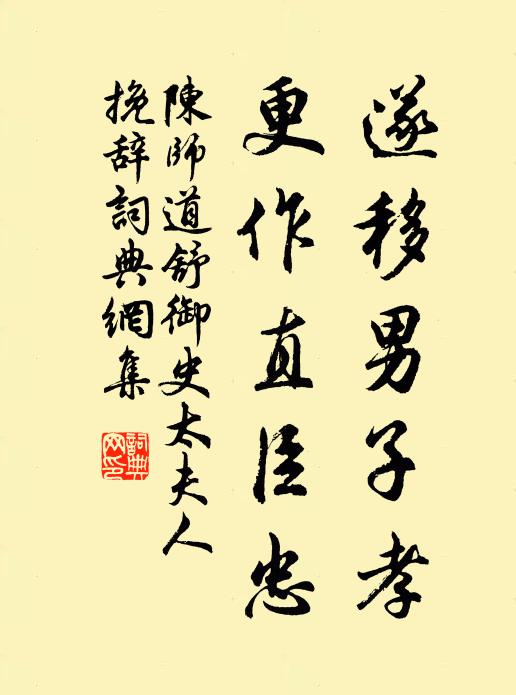 遂移男子孝
更作直臣忠
陳師道舒御史太夫人
挽辭詞典網集
詞典網印